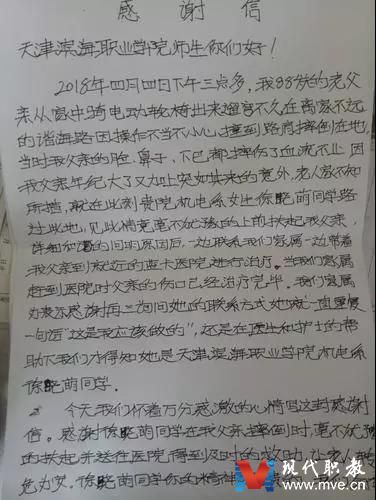 感谢信
天津滨海职业学院师生你们好!
2018年四月四日下午三点多,我88岁的老父
亲从家中骑电动轮椅出来遛弯不久在离家不远
的谐海路因操作不当不小心,撞到路肩摔倒在地,
当时我父亲的脸、鼻子、下巴都摔伤了血流不止,因
我父亲年纪大了又加上突如其来的意外,老人家不知
所措,就在此刻贵院机电系女生徐晓萌同学路
过此地,见此情竟毫不犹豫的上前扶起我父亲,
详细的问明原因后,一边联系我们家属一边带着
我父亲到就近的蓝卡医院进行治疗。当我们家属
赶到医院时父亲的伤口已经治疗完毕。我们家属
为表示感谢再三询问她的联系方式她就一直重复
一句话“这是我应该做的”,还是在医生和护士的帮
助下我们才得知她是天津滨海职业学院机电系
徐晓萌同学。
今天我们怀着万分感激的心情写这封感谢
信。感谢徐晓萌同学在我父亲摔倒时,毫不犹豫
的扶起并送往医院得到及时的救助,让老人
危为安。徐晓萌同学你的精神
现代职教
www.mve.cn